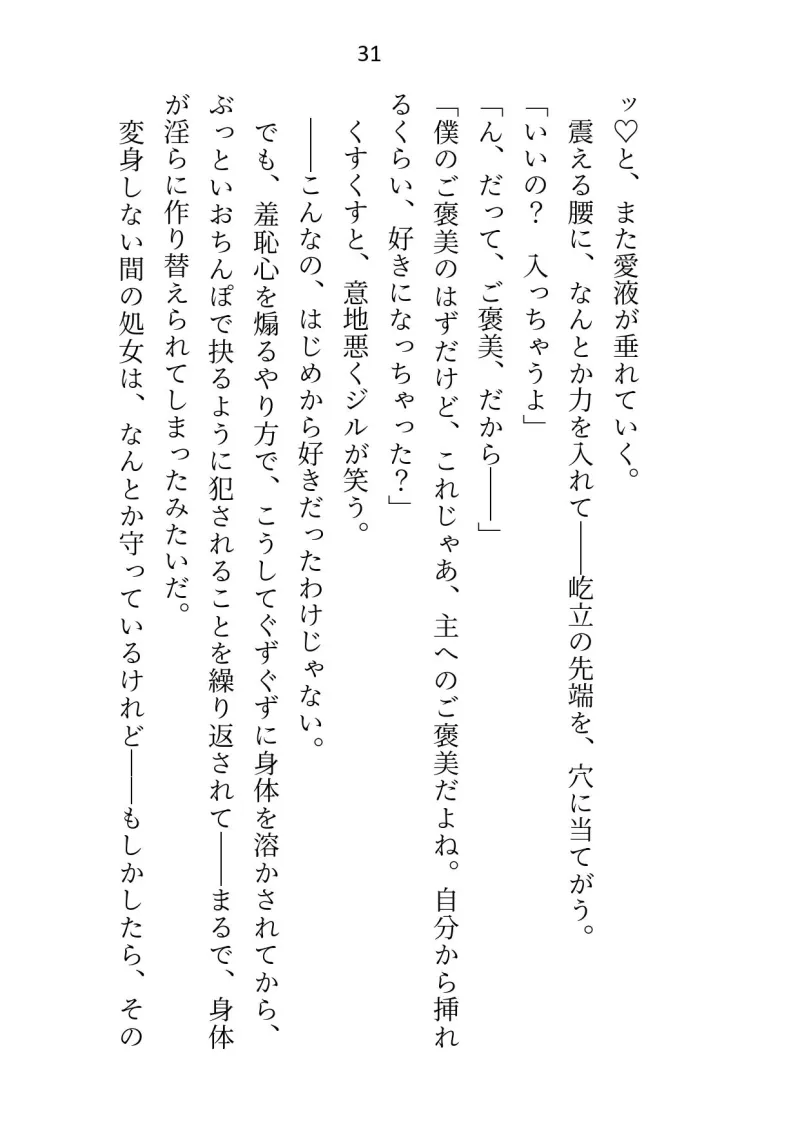 31
ッ♡と、また愛液が垂れていく。
　震える腰に、なんとか力を入れて――屹立の先端を、穴に当てがう。
「いいの？　入っちゃうよ」
「ん、だって、ご褒美、だから――」
「僕のご褒美のはずだけど、これじゃあ、主へのご褒美だよね。自分から挿れ
るくらい、好きになっちゃった？」
　くすくすと、意地悪くジルが笑う。
　――こんなの、はじめから好きだったわけじゃない。
　でも、羞恥心を煽るやり方で、こうしてぐずぐずに身体を溶かされてから、
ぶっといおちんぽで抉るように犯されることを繰り返されて――まるで、身体
が淫らに作り替えられてしまったみたいだ。
　変身しない間の処女は、なんとか守っているけれど――もしかしたら、その